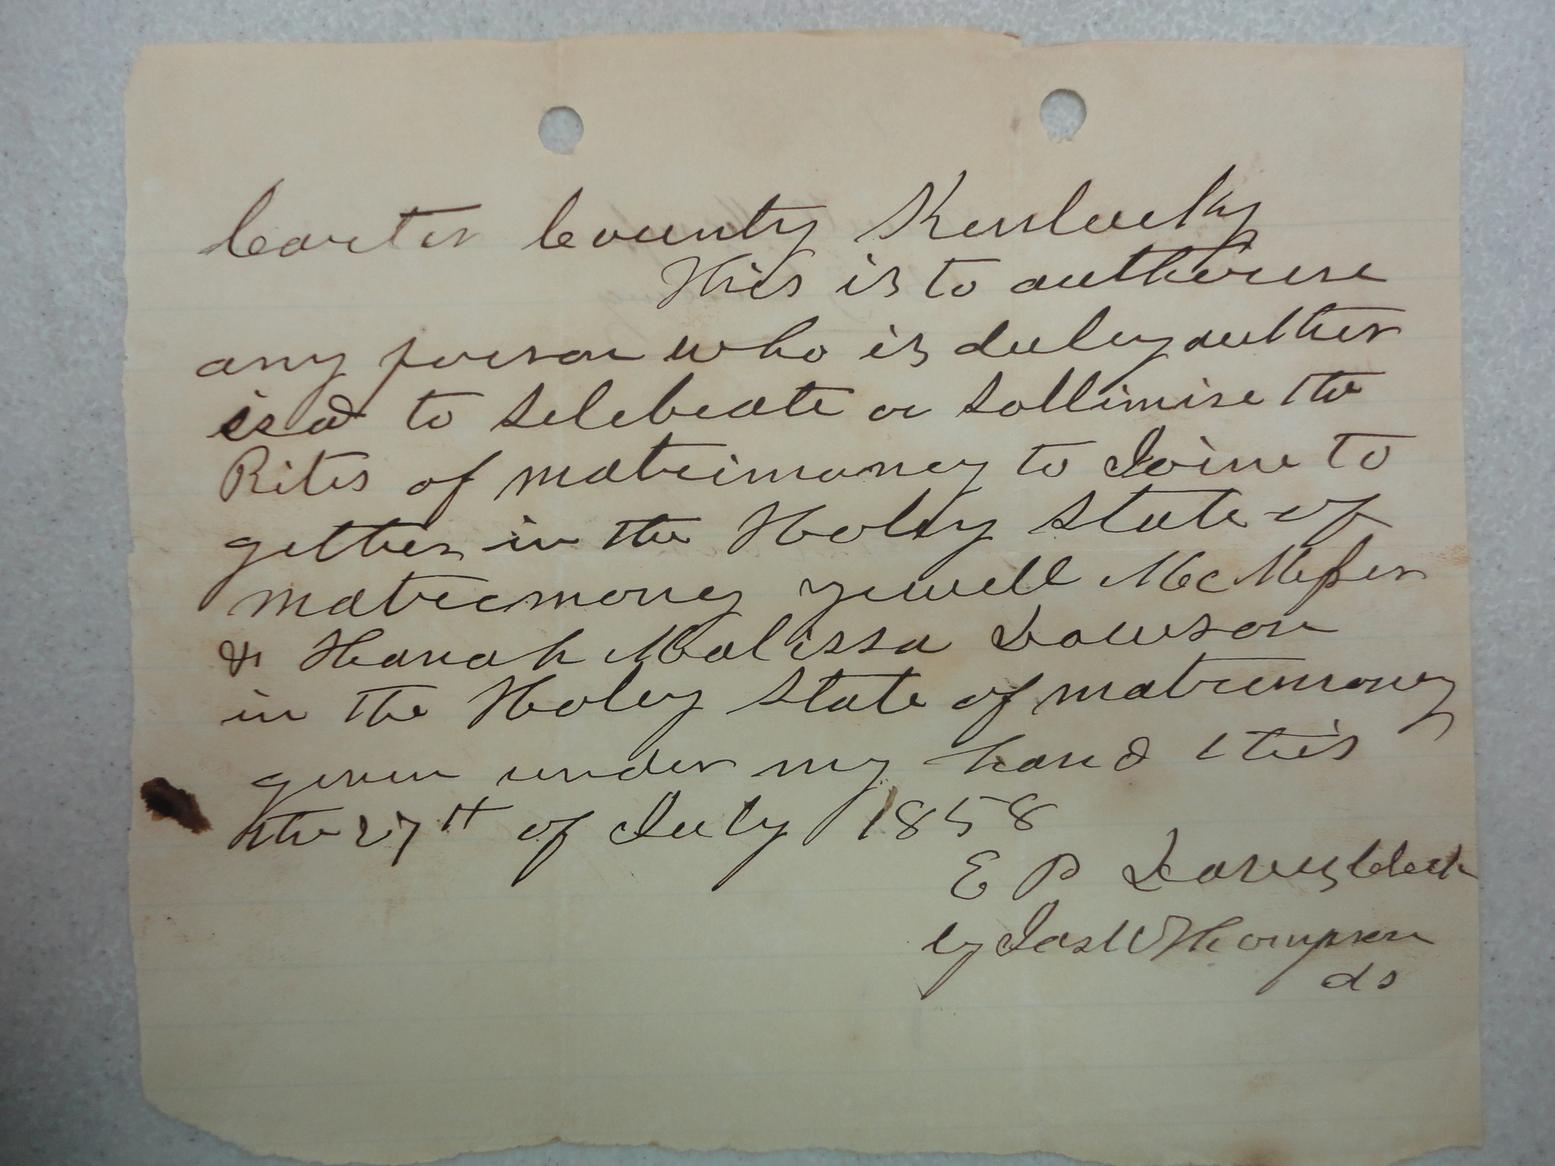 Carter County Kentucky
This is to authorise
any person who is duley auther
ised to selebrate or sollimise the
Rites of matrimoney to Joine to
gether in the Holey state of
matrimoney
& Hanah Malissa Dawson
in the Holey state of matrimoney
given under my hand this
the 27th of July 1858
E P Davis Clerk
by Jas W Thompson